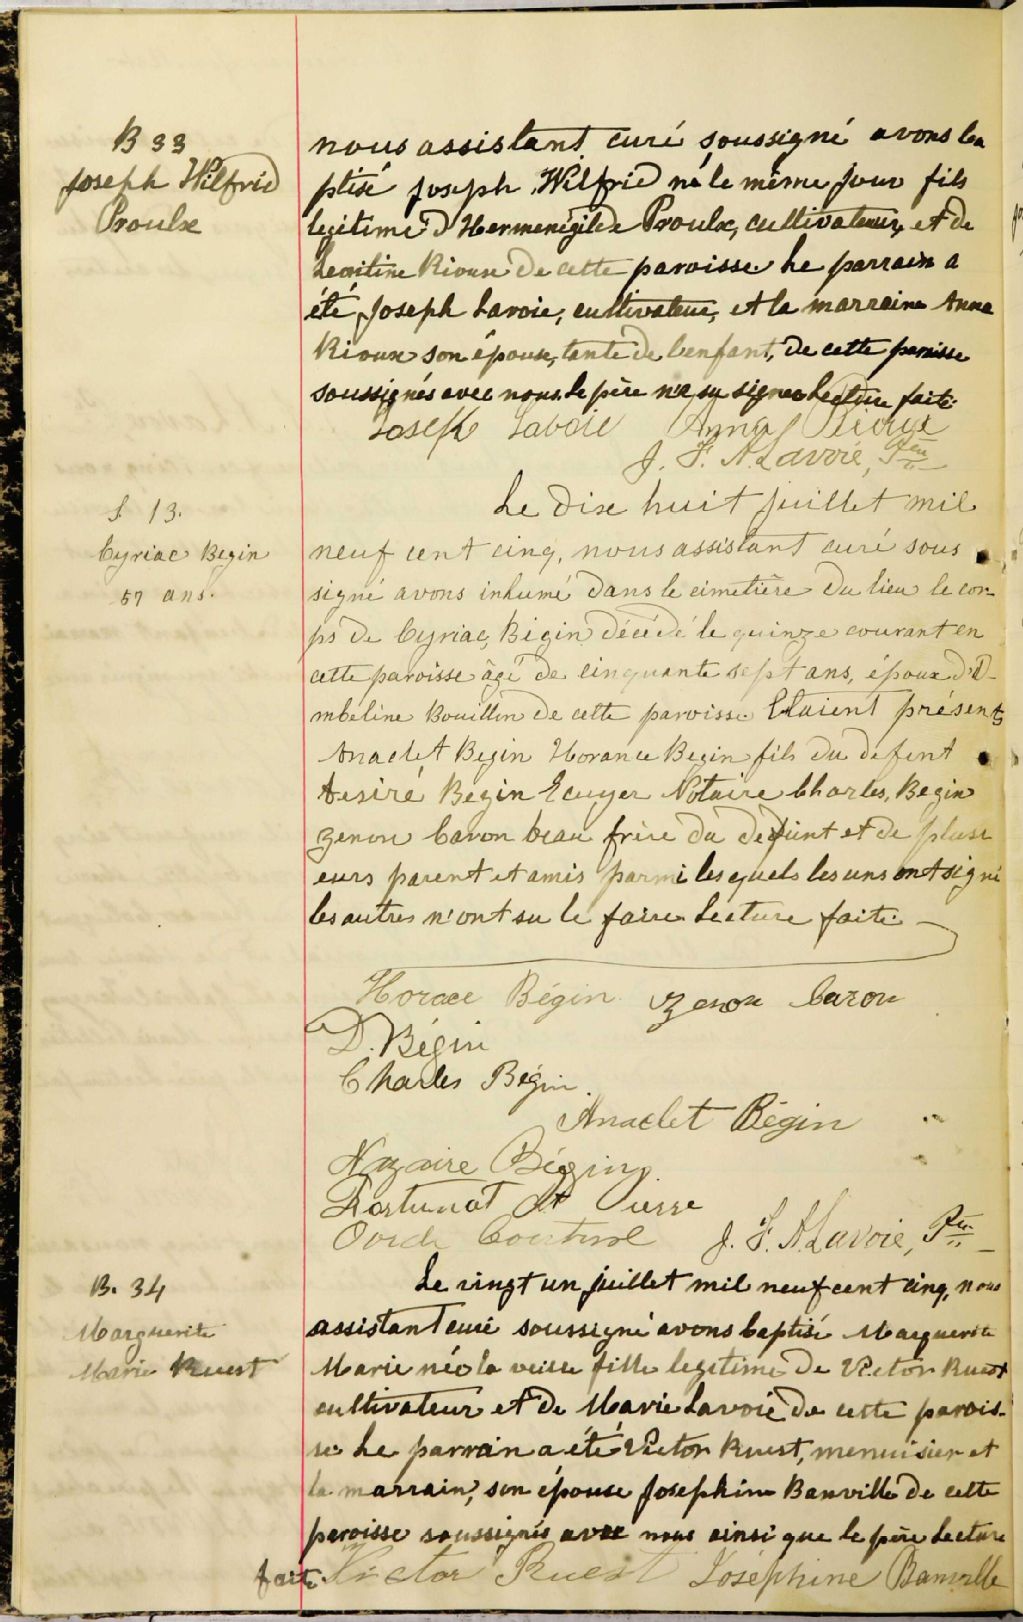 B 33
Joseph Wilfrid
Proulx
nous assistant curé soussigné avons ba
ptisé Joseph Wilfrid né le même jour fils
legitime d'Hermenégilde Proulx, cultivateur, et de
Rioux de cette paroisse Le parrain a
été Joseph Lavoie, cultivateur, et la marraine Anna
Rioux son épouse, tante de l'enfant, de cette paroisse
soussignés avec nous. Le père n'a su signer Lecture faite.
Joseph Lavoie Anna
J. F. A. Lavoie, Ptre
S. 13.
Cyriac Begin
57 ans.
Le dix huit juillet mil
neuf cent cinq, nous assistant curé sous
signé avons inhumé dans le cimetière du lieu le cor-
ps de Cyriac Bégin décédé le quinze courant en
cette paroisse âgé de cinquante sept ans, époux d'O-
mbéline Bouillon de cette paroisse Etaient présents
Anaclet Begin Horance Begin fils du defunt
Desiré Begin Ecuyer Notaire Charles, Begin
Zenon Caron beau frère du defunt et de plusi
eurs parent et amis parmi lesquels les uns ont signé
les autres n'ont su le faire. Lecture faite.
Horace Bégin Zenon Caron
D. Bégin
Charles Bégin.
Anaclet Bégin
Nazaire Bégin
Fortunat St Pierre
J. F. A. Lavoie, Ptre
B. 34
Marguerite
Marie Ruest
Le vingt un juillet mil neuf cent cinq, nous
assistant curé soussigné avons baptisé Marguerite
Marie née la veille fille legitime de Victor Ruest
cultivateur et de Marie Lavoie de cette parois-
se Le parrain a été Victor Ruest, menuisier et
la marrain, son épouse Josephine Banville de cette
paroisse soussignés avec nous ainsi que le père Lecture
faite. Victor Ruest Joséphine Banville